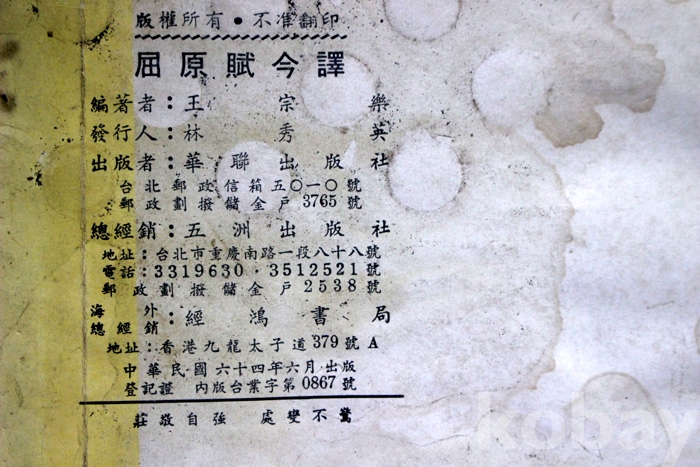 版權所有・不准翻印
屈原賦今譯
編著者：王宗樂
發行人：林秀英
出版者：華聯出版社
台北郵政信箱五〇一〇號
郵政劃撥儲金戶3765號
總經銷：五洲出版社
地址：台北市重慶南路一段八十八號
電話：3319630・3512521號
郵政劃撥儲金戶2538號
海外總經銷：經鴻書局
地址：香港九龍太子道379號A
中華民國六十四年六月出版
登記證 內版台業字第0867號
莊敬自強 處變不驚
kobay